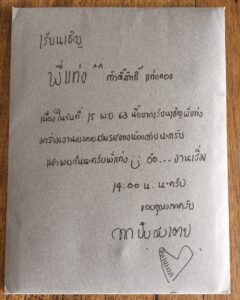 เรียนเชิญ
พี่แท่ง ^^ ศักดิ์สิทธิ์ แท่งทอง
เนื่องในวันที่ 15 พย 63 น้องอยากเรียนเชิญพี่แท่ง
มาร่วมงานมงคลสมรสของน้อง นะครับ
แล้วพบกันนะครับพี่แท่ง อ้อ... งานเริ่ม
14:00 น. นะครับ
ขอบคุณมากครับ
จาก